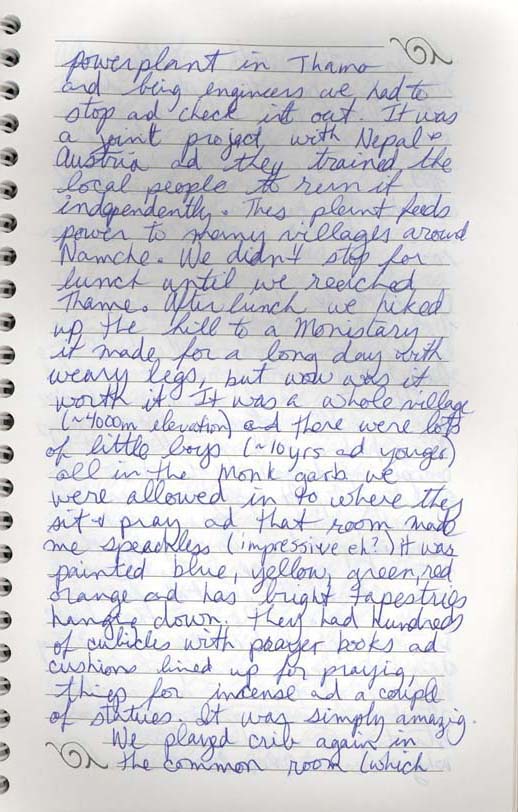 powerplant in Thamo
and being engineers we had to
stop ad check it out. It was
a joint project, with Nepal &
Austria ad they trained the
local people to run it
independently. This plant feeds
power to many villages around
Namche. We didn't stop for
lunch until we reached
Thame. After lunch we hiked
up the hill to a Monistary
it made for a long day with
weary legs, but wow was it
worth it. It was a whole village
(~4000m elevation) and there were lots
of little boys (~10yrs ad younger)
all in the monk garb. we
were allowed in to where they
sit & pray ad that room made
me speachless (impressive eh?) It was
painted blue, yellow, green, red
orange and has bright tapestries
hanging down. They had hundreds
of cubicles with prayer books ad
cushions lined up for prayig,
things for incense ad a couple
of statues. It was simply amazig.
We played crib again in
the common room (which